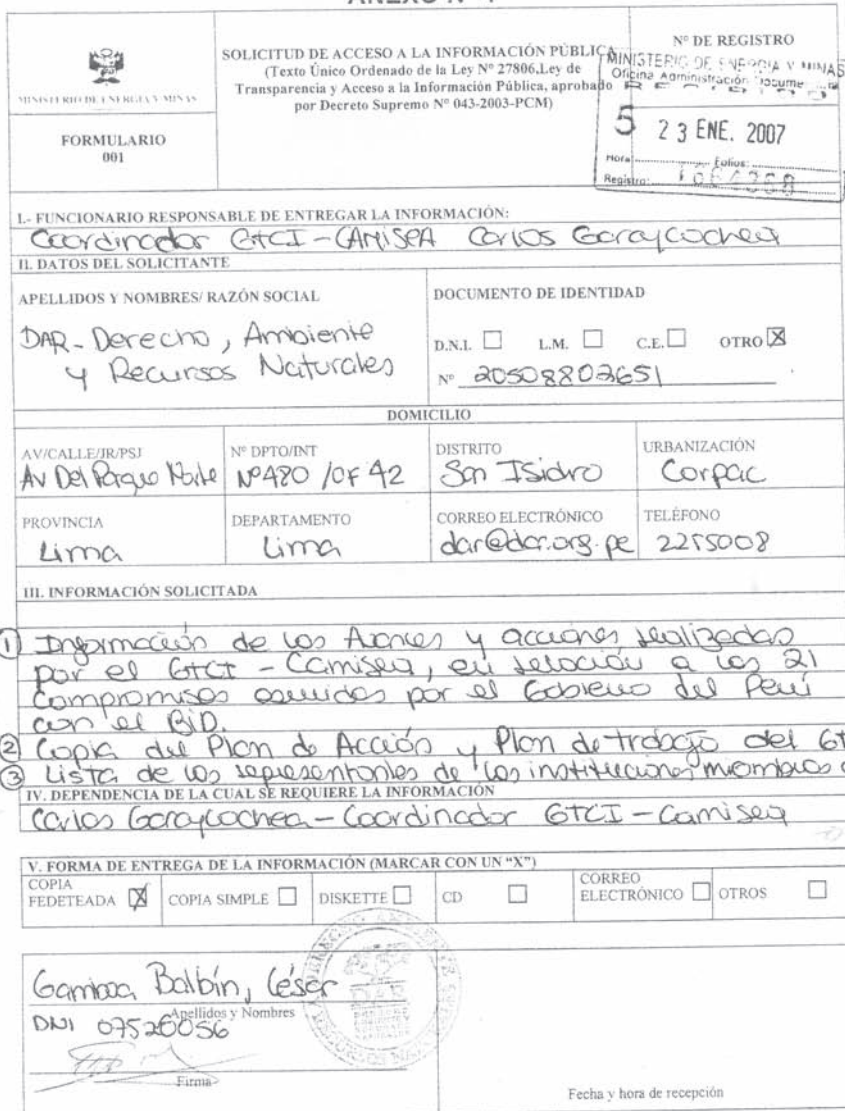 ANEXO N°
MINISTERIO DE ENERGIA Y MINAS
FORMULARIO
001
SOLICITUD DE ACCESO A LA INFORMACIÓN PÚBLICA
(Texto Único Ordenado de la Ley Nº 27806,Ley de
Transparencia y Acceso a la Información Pública, aprobado
por Decreto Supremo Nº 043-2003-PCM)
Nº DE REGISTRO
MINISTERIO DE ENERGIA Y MINAS
Oficina Administración Docume
5 23 ENE. 2007
Hora: Folios:
Registro:
I.- FUNCIONARIO RESPONSABLE DE ENTREGAR LA INFORMACIÓN:
Coordinador GTCI - CAMISEA Carlos Garaycochea
II. DATOS DEL SOLICITANTE
APELLIDOS Y NOMBRES/ RAZÓN SOCIAL
DAR - Derecho, Ambiente
y Recursos Naturales
DOCUMENTO DE IDENTIDAD
D.N.I. L.M. C.E. OTRO X
Nº 20508802651
DOMICILIO
AV/CALLE/JR/PSJ
Av Del Parque Norte
Nº DPTO/INT
Nº480 /OF 42
DISTRITO
San Isidro
URBANIZACIÓN
Corpac
PROVINCIA
Lima
DEPARTAMENTO
Lima
CORREO ELECTRÓNICO
dar@dar.org.pe
TELÉFONO
2255008
III. INFORMACIÓN SOLICITADA
① Información de los Avances y acciones realizadas
por el GTCI - Camisea, en relación a los 21
Compromisos asumidos por el Gobierno del Perú
con el BID.
② Copia del Plan de Acción y Plan de trabajo del GT
③ Lista de los representantes de los instituciones miembros
IV. DEPENDENCIA DE LA CUAL SE REQUIERE LA INFORMACIÓN
Carlos Garaycochea - Coordinador GTCI - Camisea
V. FORMA DE ENTREGA DE LA INFORMACIÓN (MARCAR CON UN “X”)
COPIA
FEDETEADA X
COPIA SIMPLE
DISKETTE
CD
CORREO
ELECTRÓNICO
OTROS
Gamboa Balbín, César
Apellidos y Nombres
DNI 07526056
Firma
DAR
Fecha y hora de recepción